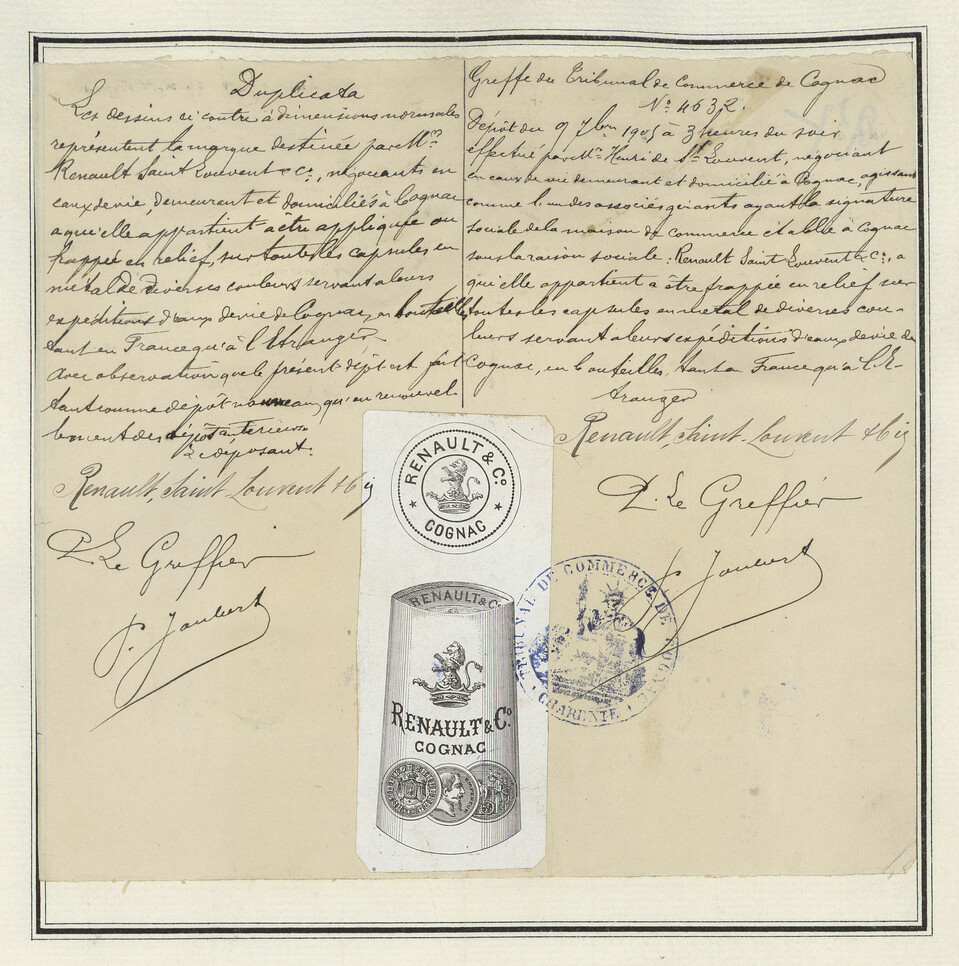 Duplicata
Les dessins ci contre à dimensions normales
représentent la marque destinée par M.rs
Renault Saint Louvent & Co., négociants en
eaux de vie, demeurant et domiciliés à Cognac
a qu'elle appartient a être appliquée ou
frappée en relief, sur toutes les capsules en
métal de diverses couleurs servant a leurs
expéditions d'eaux de vie de Cognac, en bouteilles
tant en France qu'à l'Etranger
Avec observation que le présent dépôt est fait
tant comme dépôt nouveau, qu'en renouvel-
lement des dépôts antérieurs.
Le déposant.
Renault, Saint Louvent & Cie
P. Le Greffier
P. Joubert
Greffe du Tribunal de Commerce de Cognac
No. 4632.
Dépôt du 9 7bre 1905 à 3 heures du soir
effectué par Mr. Henri de St. Louvent, négociant
en eaux de vie demeurant et domicilié à Cognac, agissant
comme l'un des associés gérants ayant la signature
sociale de la maison de commerce établie à Cognac
sous la raison sociale : Renault Saint Louvent & Co., a
qui elle appartient a être frappée en relief sur
toutes les capsules en métal de diverses cou-
leurs servant a leurs expéditions d'eaux de vie de
Cognac, en bouteilles, tant en France qu'a l'E-
tranger
Renault, Saint-Louvent & Cie
P. Le Greffier
P. Joubert
RENAULT & Co.
COGNAC
RENAULT & Co
RENAULT & Co.
COGNAC
TRIBUNAL DE COMMERCE DE COGNAC
CHARENTE